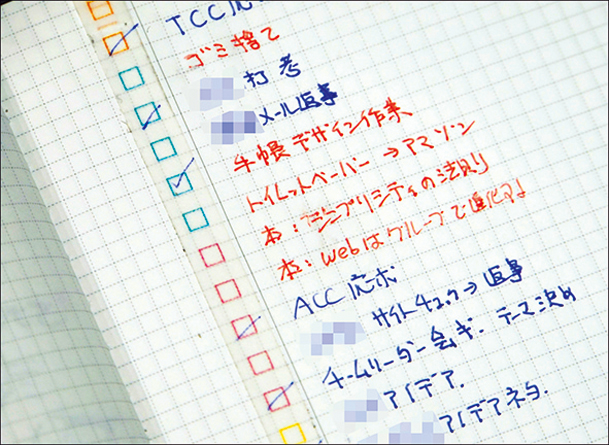 TCC応
ゴミ捨て
打考
メール返事
手帳デザイン作成
トイレットペーパー→アマゾン
本：シンプリシティの法則
本：webはグループで進化する
ACC応募
サイトチェック→返事
チームリーダー会ギ．テーマ決め
アイデア．
アイデアネタ．